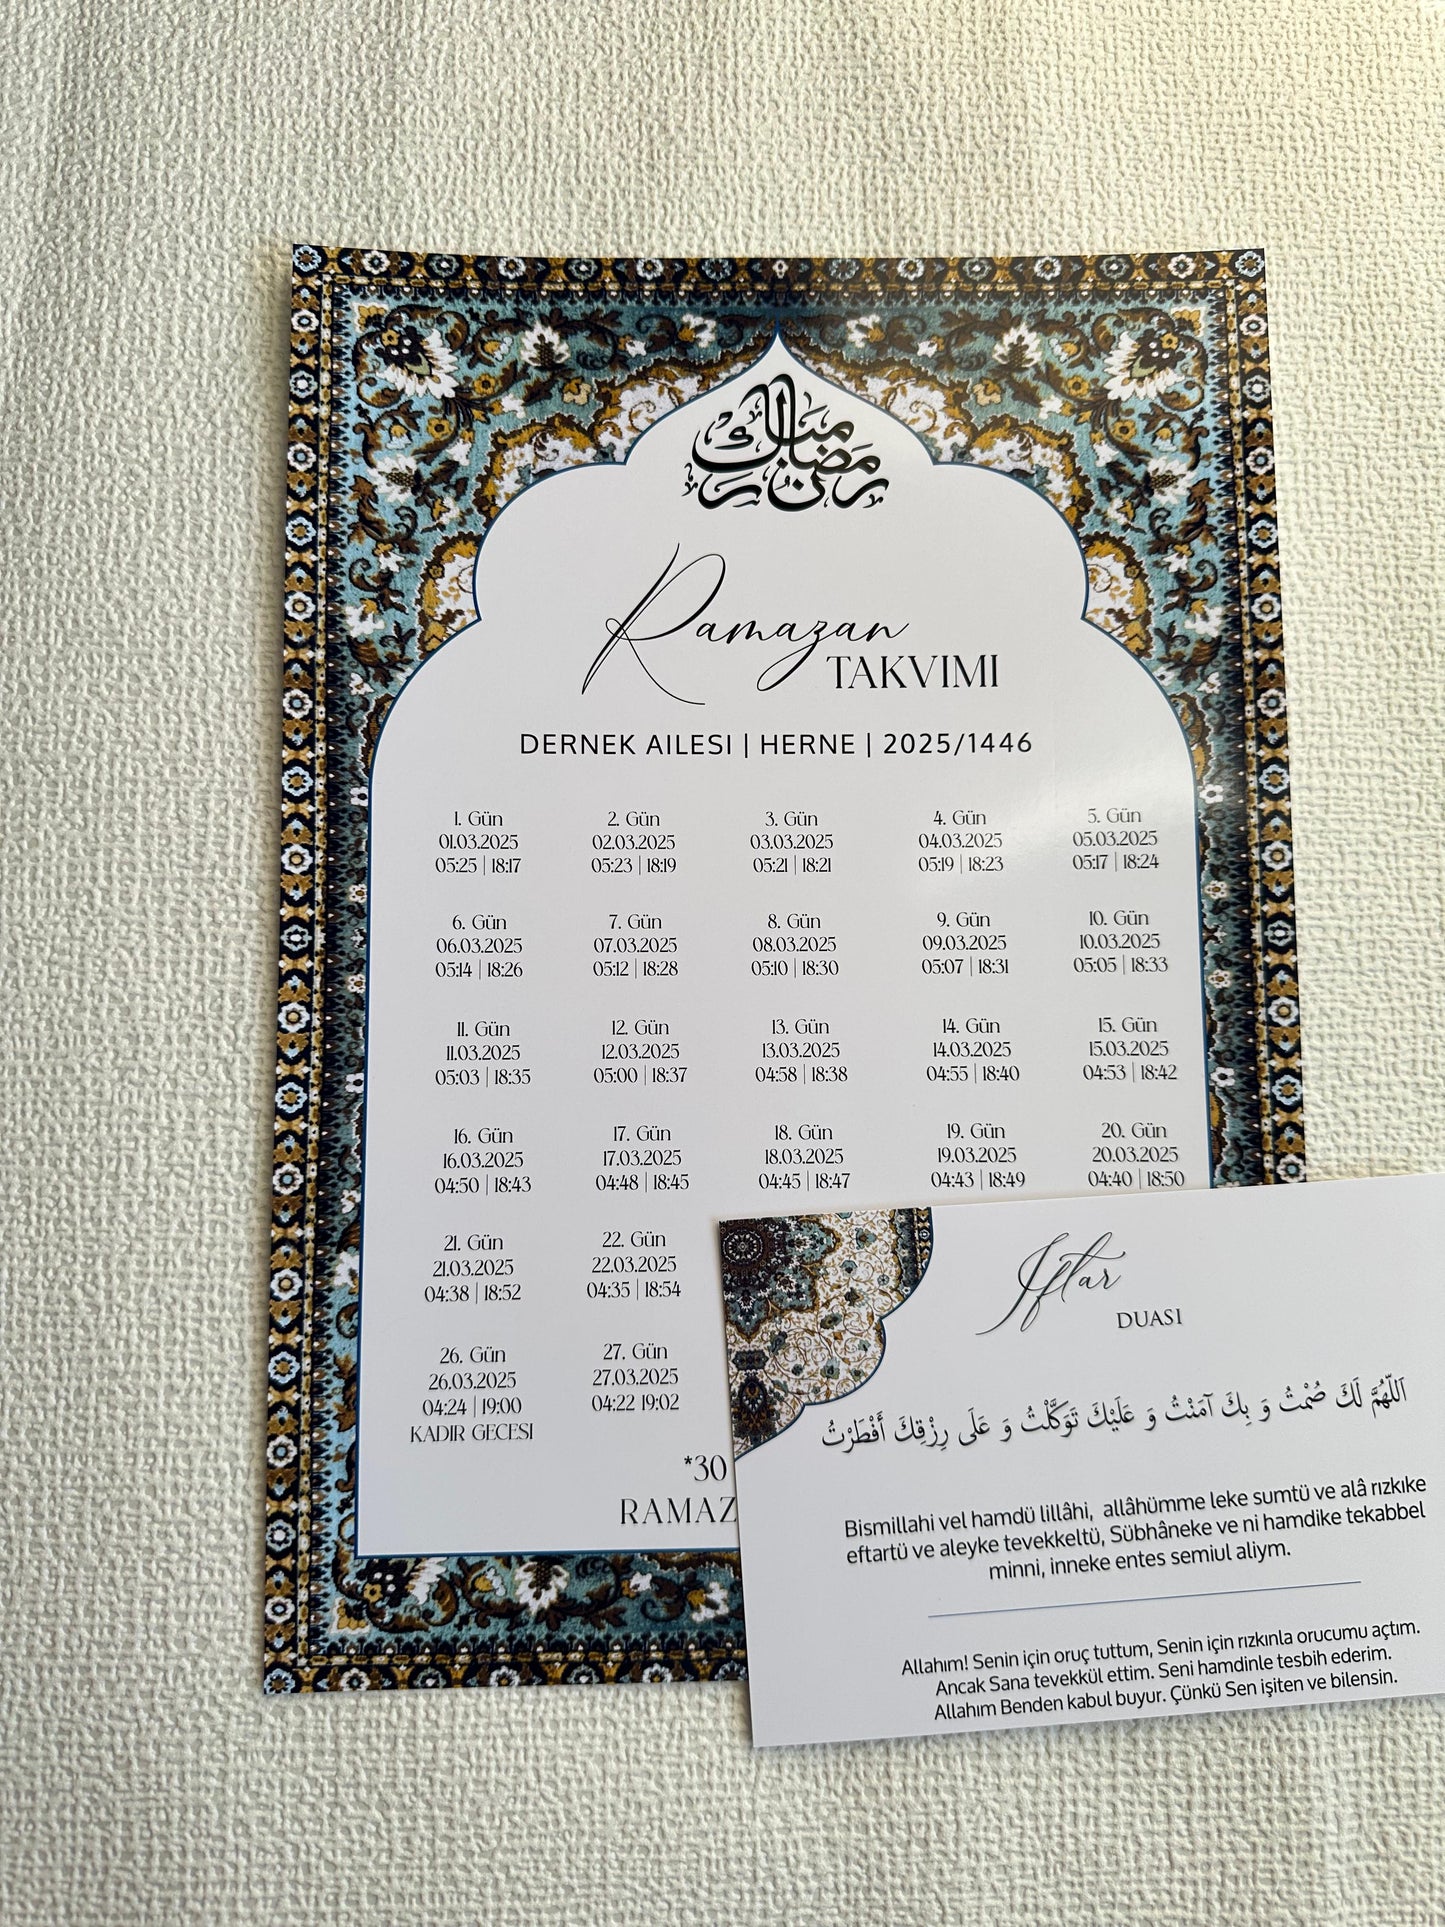 رمضان مبارك
Ramazan
TAKVIMI
DERNEK AILESI | HERNE | 2025/1446
1. Gün 2. Gün 3. Gün 4. Gün 5. Gün
01.03.2025 02.03.2025 03.03.2025 04.03.2025 05.03.2025
05:25 | 18:17 05:23 | 18:19 05:21 | 18:21 05:19 | 18:23 05:17 | 18:24
6. Gün 7. Gün 8. Gün 9. Gün 10. Gün
06.03.2025 07.03.2025 08.03.2025 09.03.2025 10.03.2025
05:14 | 18:26 05:12 | 18:28 05:10 | 18:30 05:07 | 18:31 05:05 | 18:33
11. Gün 12. Gün 13. Gün 14. Gün 15. Gün
11.03.2025 12.03.2025 13.03.2025 14.03.2025 15.03.2025
05:03 | 18:35 05:00 | 18:37 04:58 | 18:38 04:55 | 18:40 04:53 | 18:42
16. Gün 17. Gün 18. Gün 19. Gün 20. Gün
16.03.2025 17.03.2025 18.03.2025 19.03.2025 20.03.2025
04:50 | 18:43 04:48 | 18:45 04:45 | 18:47 04:43 | 18:49 04:40 | 18:50
21. Gün 22. Gün
21.03.2025 22.03.2025
04:38 | 18:52 04:35 | 18:54
26. Gün 27. Gün
26.03.2025 27.03.2025
04:24 | 19:00 04:22 19:02
KADIR GECESI
*30
RAMAZ
Iftar
DUASI
اَللّهُمَّ لَكَ صُمْتُ وَ بِكَ آمَنْتُ وَ عَلَيْكَ تَوَكَّلْتُ وَ عَلَى رِزْقِكَ أَفْطَرْتُ
Bismillahi vel hamdü lillâhi, allâhümme leke sumtü ve alâ rızkıke
eftartü ve aleyke tevekkeltü, Sübhâneke ve ni hamdike tekabbel
minni, inneke entes semiul aliym.
Allahım! Senin için oruç tuttum, Senin için rızkınla orucumu açtım.
Ancak Sana tevekkül ettim. Seni hamdinle tesbih ederim.
Allahım Benden kabul buyur. Çünkü Sen işiten ve bilensin.